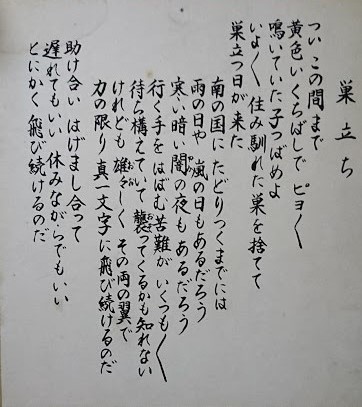 巣立ち
ついこの間まで
黄色いくちばしで ピヨ〱
鳴いていた子つばめよ
いよ〱 住み馴れた巣を捨てて
巣立つ日が来た
南の国に たどりつくまでには
雨の日や 嵐の日もあるだろう
寒い暗い闇の夜もあるだろう
行く手をはばむ苦難が いくつも〱
待ち構えていて 襲ってくるかも知れない
けれども 雄々しく その両の翼で
力の限り 真一文字に飛び続けるのだ
助け合い はげまし合って
遅れてもいい 休みながらでもいい
とにかく 飛び続けるのだ